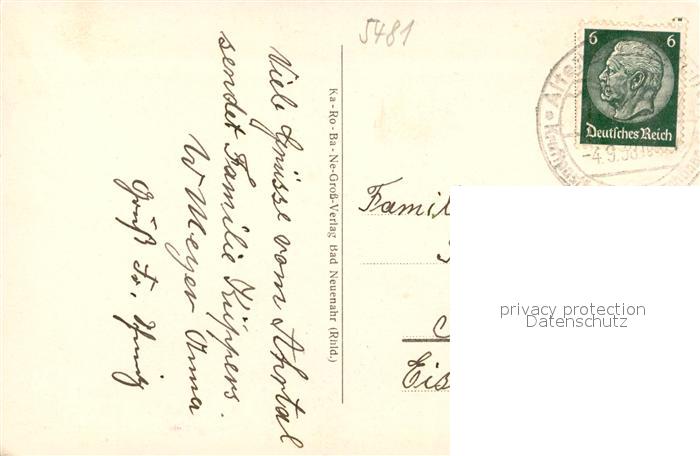 5481
Viele Grüsse vom Ahrtal
sendet Familie Küppers.
W Meyer Anna
Gruß Fr.
Ka-Ro-Ba-Ne-Groß-Verlag Bad Neuenahr (Rhld.)
6 6
Deutsches Reich
Alte
-4.9.38
Famil
Eis
privacy protection
Datenschutz